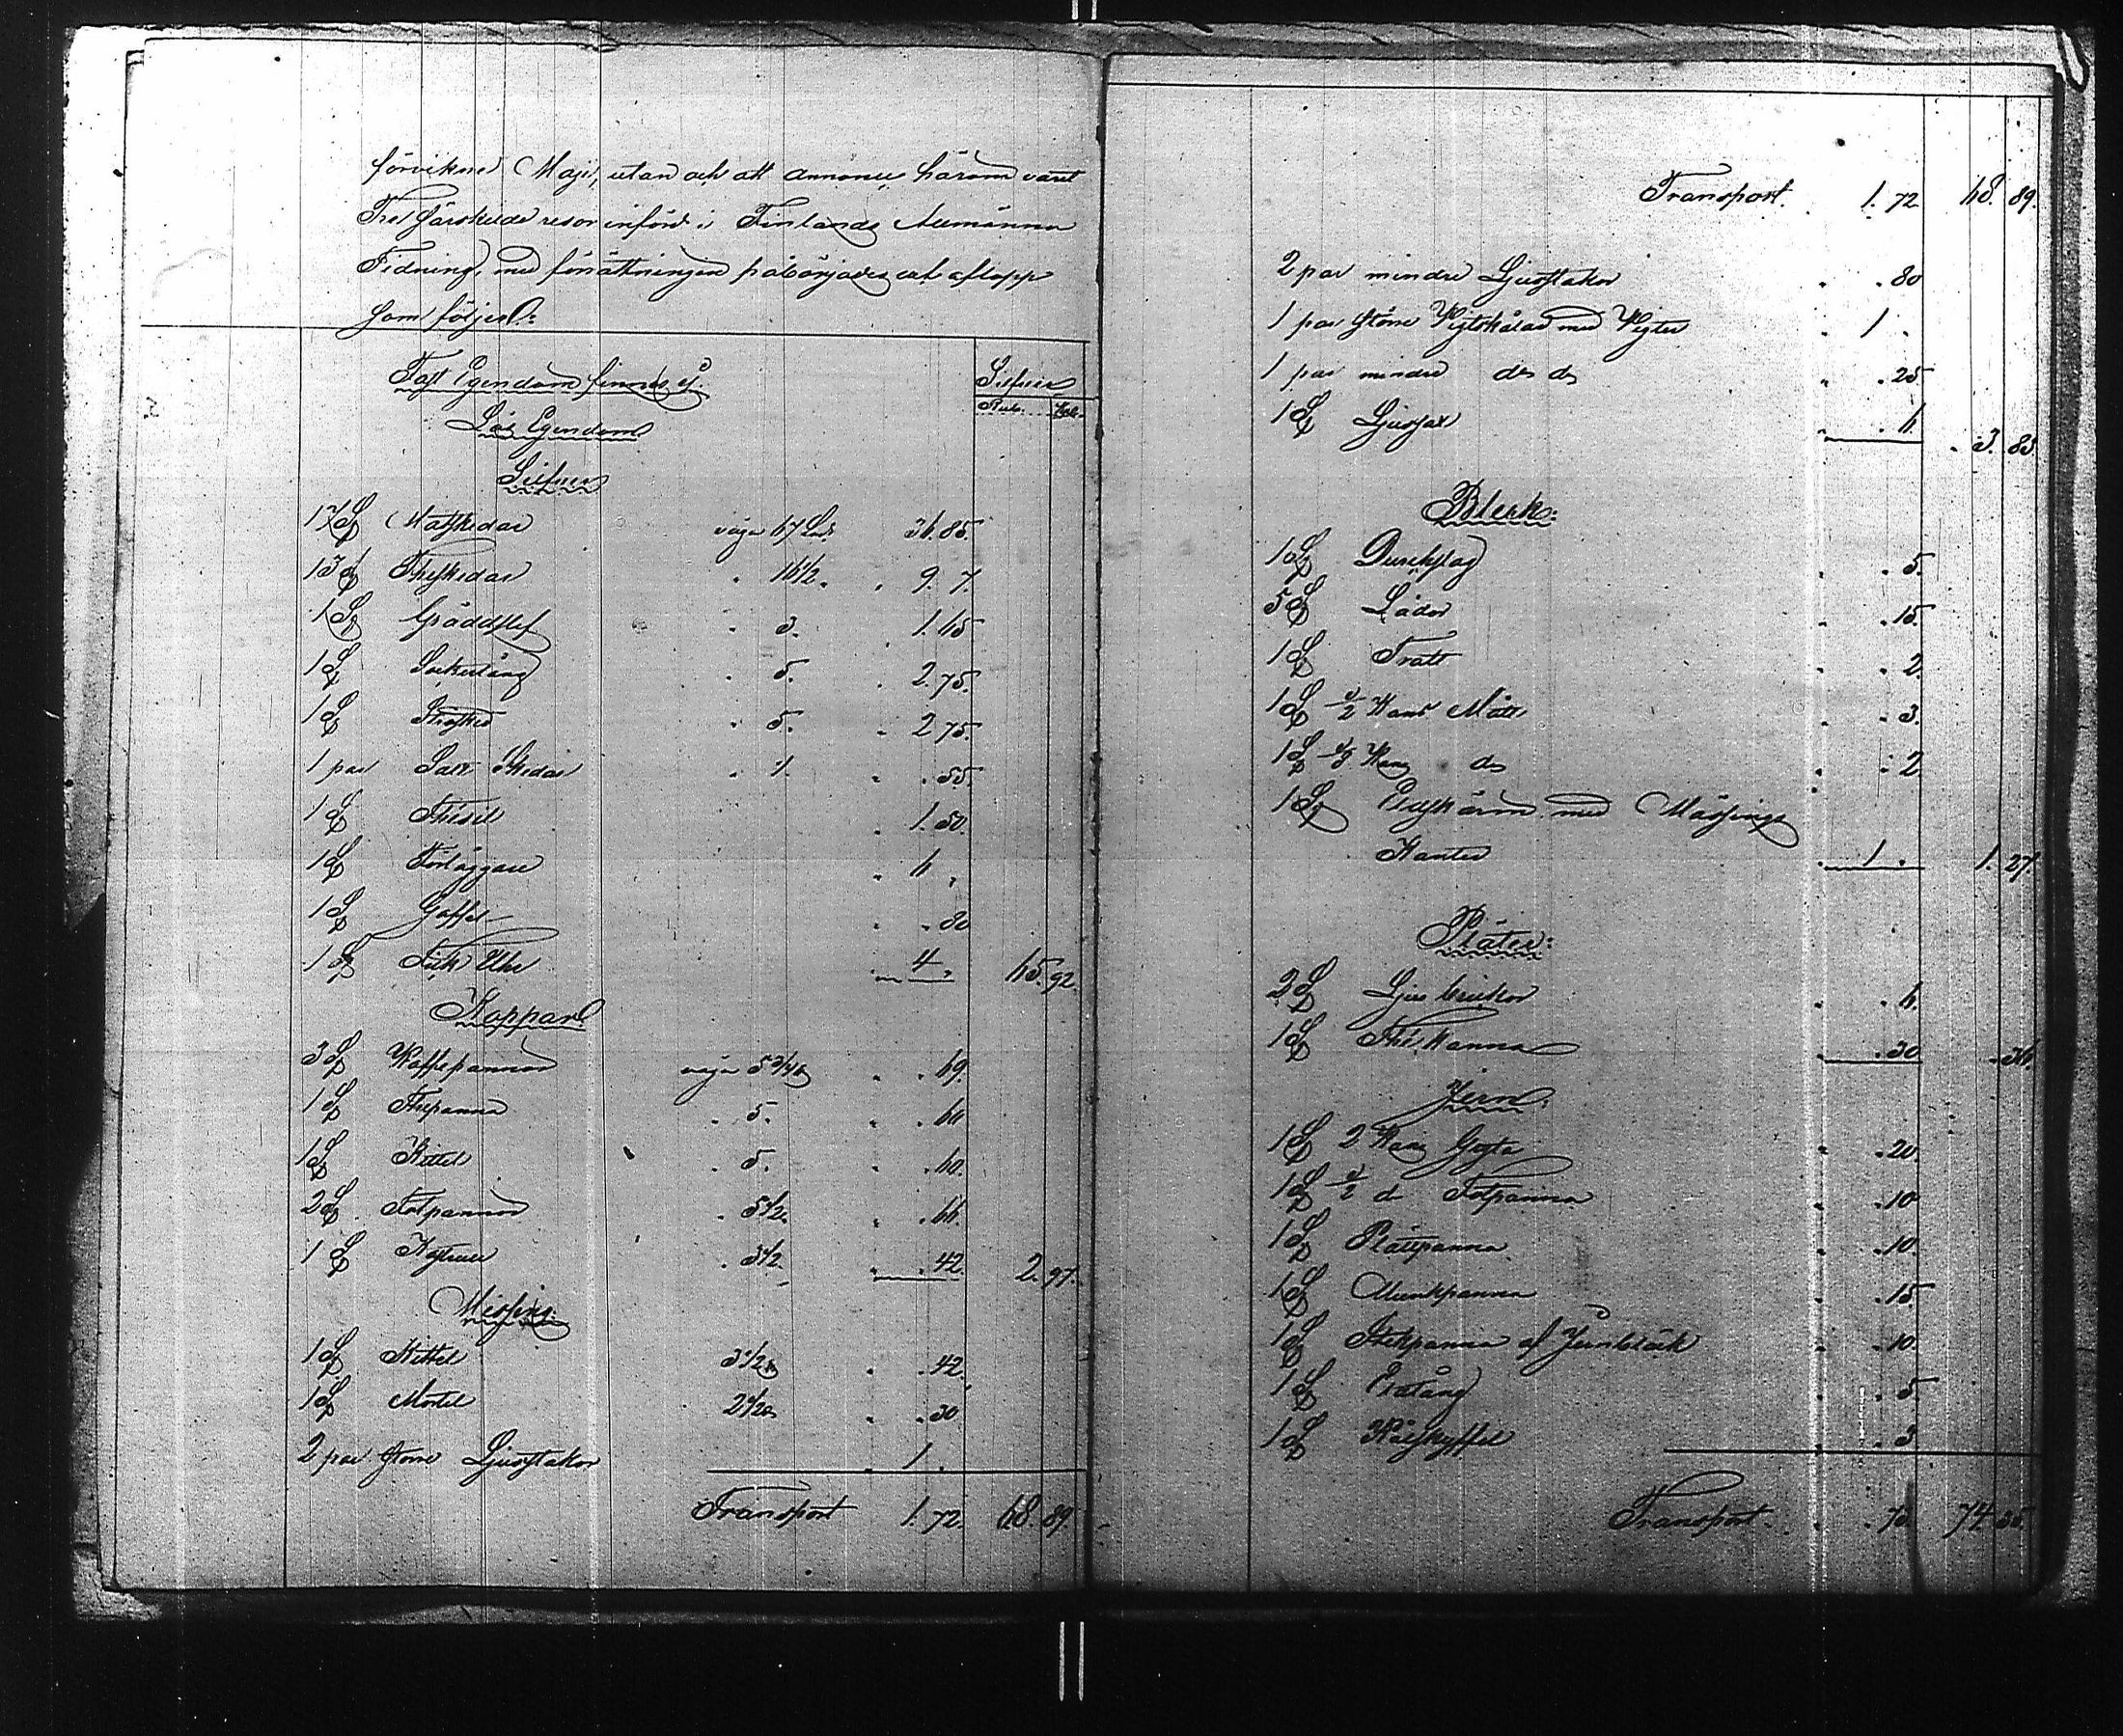 förvikne Maji, utan och att annonce härom varit
Tre särskilde resor införd i Finlands Allmänna
Tidning, med förrättningen påbörjades och aflopp
som följer:
Silfver
Rub. Kop.
Fast Egendom finnes ej.
Lös Egendom
Silfver
17 St Matskedar väga 67 Lod 36. 85.
13 St Theskedar " 16 1/2 " " 9. 7.
1 St Gräddslef " 3. 1. 65
1 St Sockertång " 5. " 2. 75.
1 St Strösked " 5. " 2 75.
1 par Salt Skedar " 1. " . 55.
1 St Thésil " 1. 50.
1 St Förläggare " 6 "
1 St Gaffel " . 80
1 St Fick Uhr " 4 " 65. 92.
Koppar:
3 St Kaffepannor väga 5 3/4 " . 69.
1 St Thepanna " 5. " . 60
1 St Kittel " 5. . 60.
2 St Fotpannor " 5 1/2 " . 66.
1 St Kastrull " 3 1/2 " . 42. 2. 97.
Messing:
1 St Kittel 3 1/2 " . 42.
1 St Mortel 2 1/2 " . 30
2 par större Ljusstakar " 1 .
Transport 1. 72. 68. 89.
Transport. 1. 72 68. 89.
2 par mindre Ljusstakar " . 80
1 par större Vigtskålar med Vigter " 1 .
1 par mindre do do " . 25
1 St Ljussax " . 6. " 3. 83
Bleck:
1 St Durckslag " . 5.
5 St Lådor " . 15.
1 St Tratt " . 2.
1 St 1/2 Kans Mått " . 3.
1 St 1/8 Kans do " . 2.
1 St Eldskärm med Mässings
Kanter " 1 . 1. 27.
Pläter:
2 St Ljus brickor " . 6.
1 St Thé Kanna " . 30 . 36.
Jern:
1 St 2 Kans Gryta " . 20.
1 St 1/2 d Fotpanna " . 10
1 St Plättpanna " . 10.
1 St Munkpanna " . 15.
1 St Stekpanna af Jernbläck " . 10.
1 St Eldtång " . 5
1 St Kålskyffel " . 3
Transport. " . 73 74. 35.